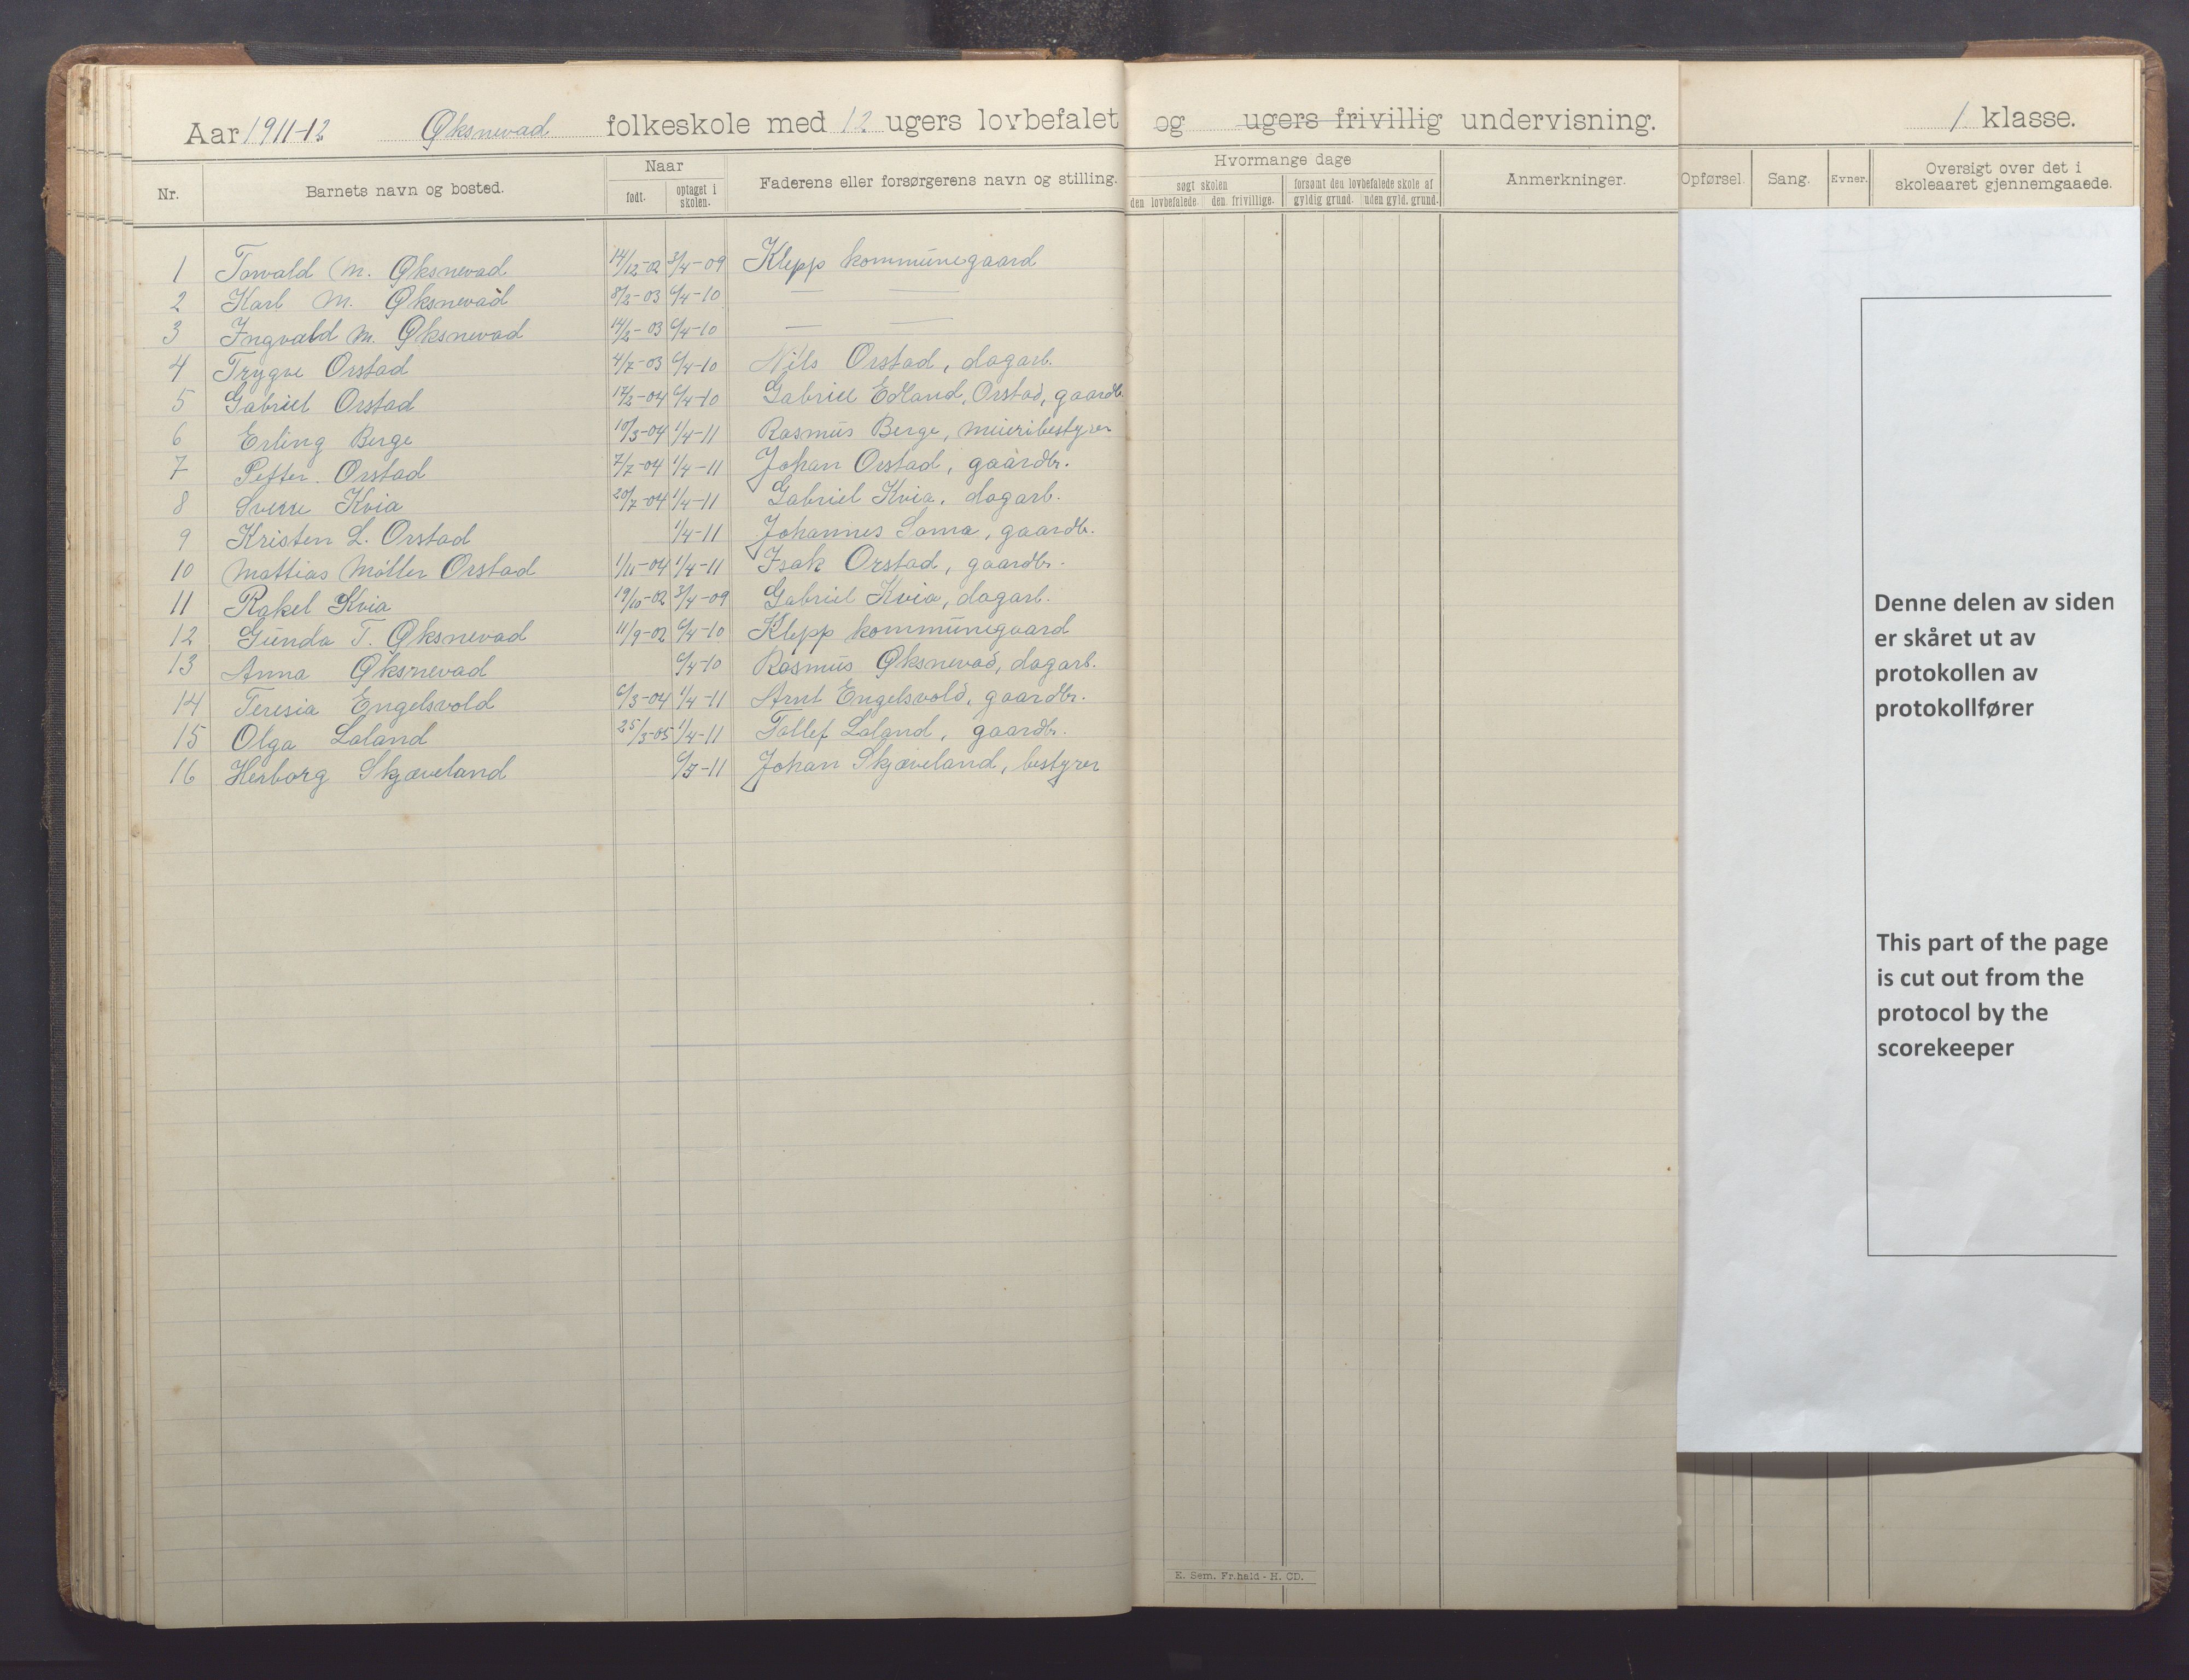 Aar 1911-12 Øksnevad folkeskole med 12 ugers lovbefalet og ugers frivillig undervisning. 1 klasse.
Nr. Barnets navn og bosted. Naar født. optaget i skolen. Faderens eller forsørgerens navn og stilling. Hvormange dage søgt skolen den lovbefalede. den frivillige. forsømt den lovbefalede skole af gyldig grund. uden gyld. grund. Anmerkninger. Opførsel. Sang. Evner. Oversigt over det i skoleaaret gjennemgaaede.
1 Torvald M. Øksnevad 14/12-02 3/4-09 Klepp kommunegaard
2 Karl M. Øksnevad 8/2-03 6/4-10 — —
3 Ingvald M. Øksnevad 14/2-03 6/4-10 — —
4 Trygve Orstad 4/7-03 6/4-10 Nils Orstad, dagarb.
5 Gabriel Orstad 17/2-04 6/4-10 Gabriel Edland, Orstad, gaardb.
6 Erling Berge 10/3-04 1/4-11 Rasmus Berge, meieribestyrer
7 Petter Orstad 7/7-04 1/4-11 Johan Orstad, gaardbr.
8 Sverre Kvia 20/7-04 1/4-11 Gabriel Kvia, dagarb.
9 Kristen L. Orstad 1/4-11 Johannes Soma, gaardb.
10 Mattias Möller Orstad 1/11-04 1/4-11 Isak Orstad, gaardbr.
11 Rakel Kvia 19/10-02 3/4-09 Gabriel Kvia, dagarb.
12 Gunda T. Øksnevad 11/9-02 6/4-10 Klepp kommunegaard
13 Anna Øksnevad 6/4-10 Rasmus Øksnevad, dagarb.
14 Teresia Engelsvold 6/3-04 1/4-11 Arnt Engelsvold, gaardbr.
15 Olga Laland 25/3-05 1/4-11 Tollef Laland, gaardbr.
16 Herborg Skjæveland 6/5-11 Johan Skjæveland, bestyrer
Denne delen av siden
er skåret ut av
protokollen av
protokollfører
This part of the page
is cut out from the
protocol by the
scorekeeper
E. Sem. Fr.hald - H. CD.